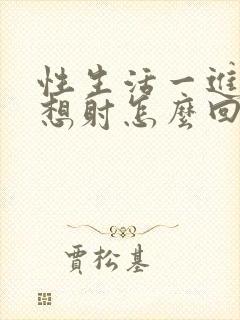 性生活一進
想射怎麼回
賈松基